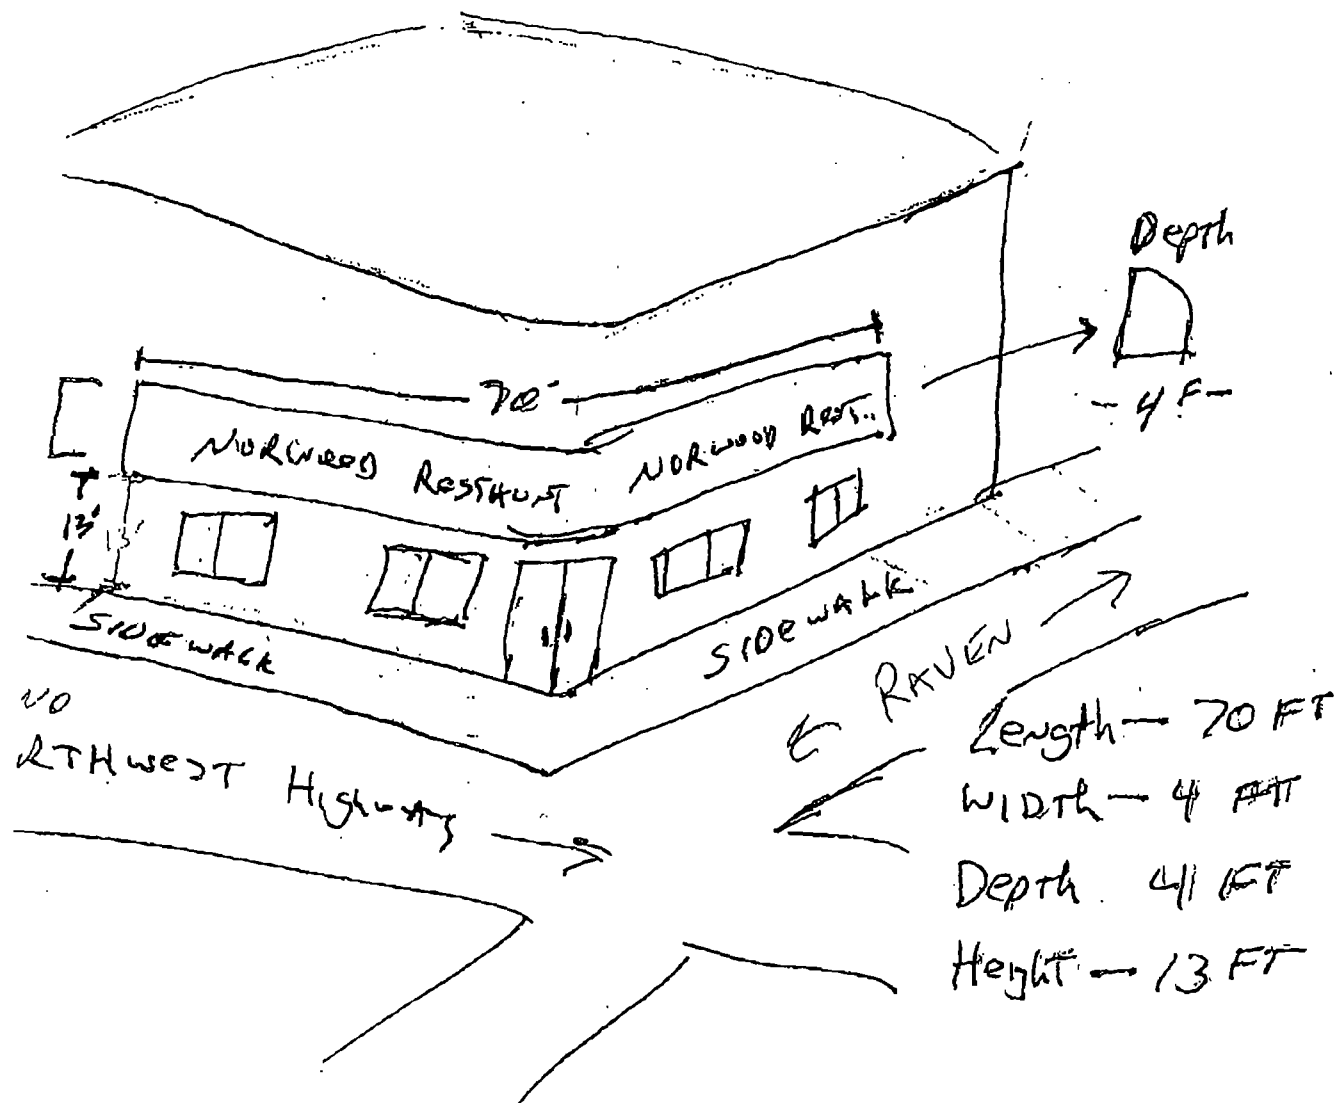 Depth
4 F
70'
NORWOOD RESTHUNT
NORWOOD REST..
13'
13'
SIDEWALK
SIDEWALK
RAVEN
NO
RTHWEST HIGHWAY
Length - 70 FT
WIDTH - 4 FT
Depth 4 FT
Height - 13 FT